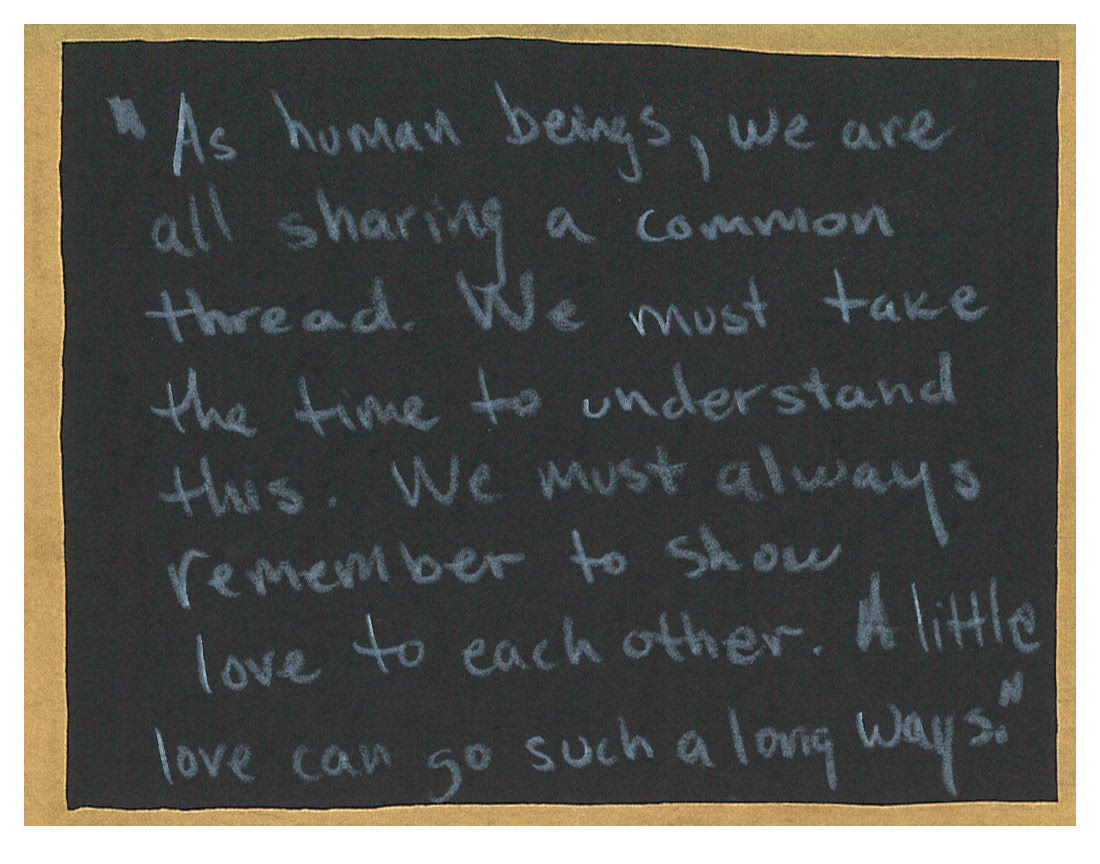 "As human beings, we are
all sharing a common
thread. We must take
the time to understand
this. We must always
remember to show
love to each other. A little
love can go such a long ways."